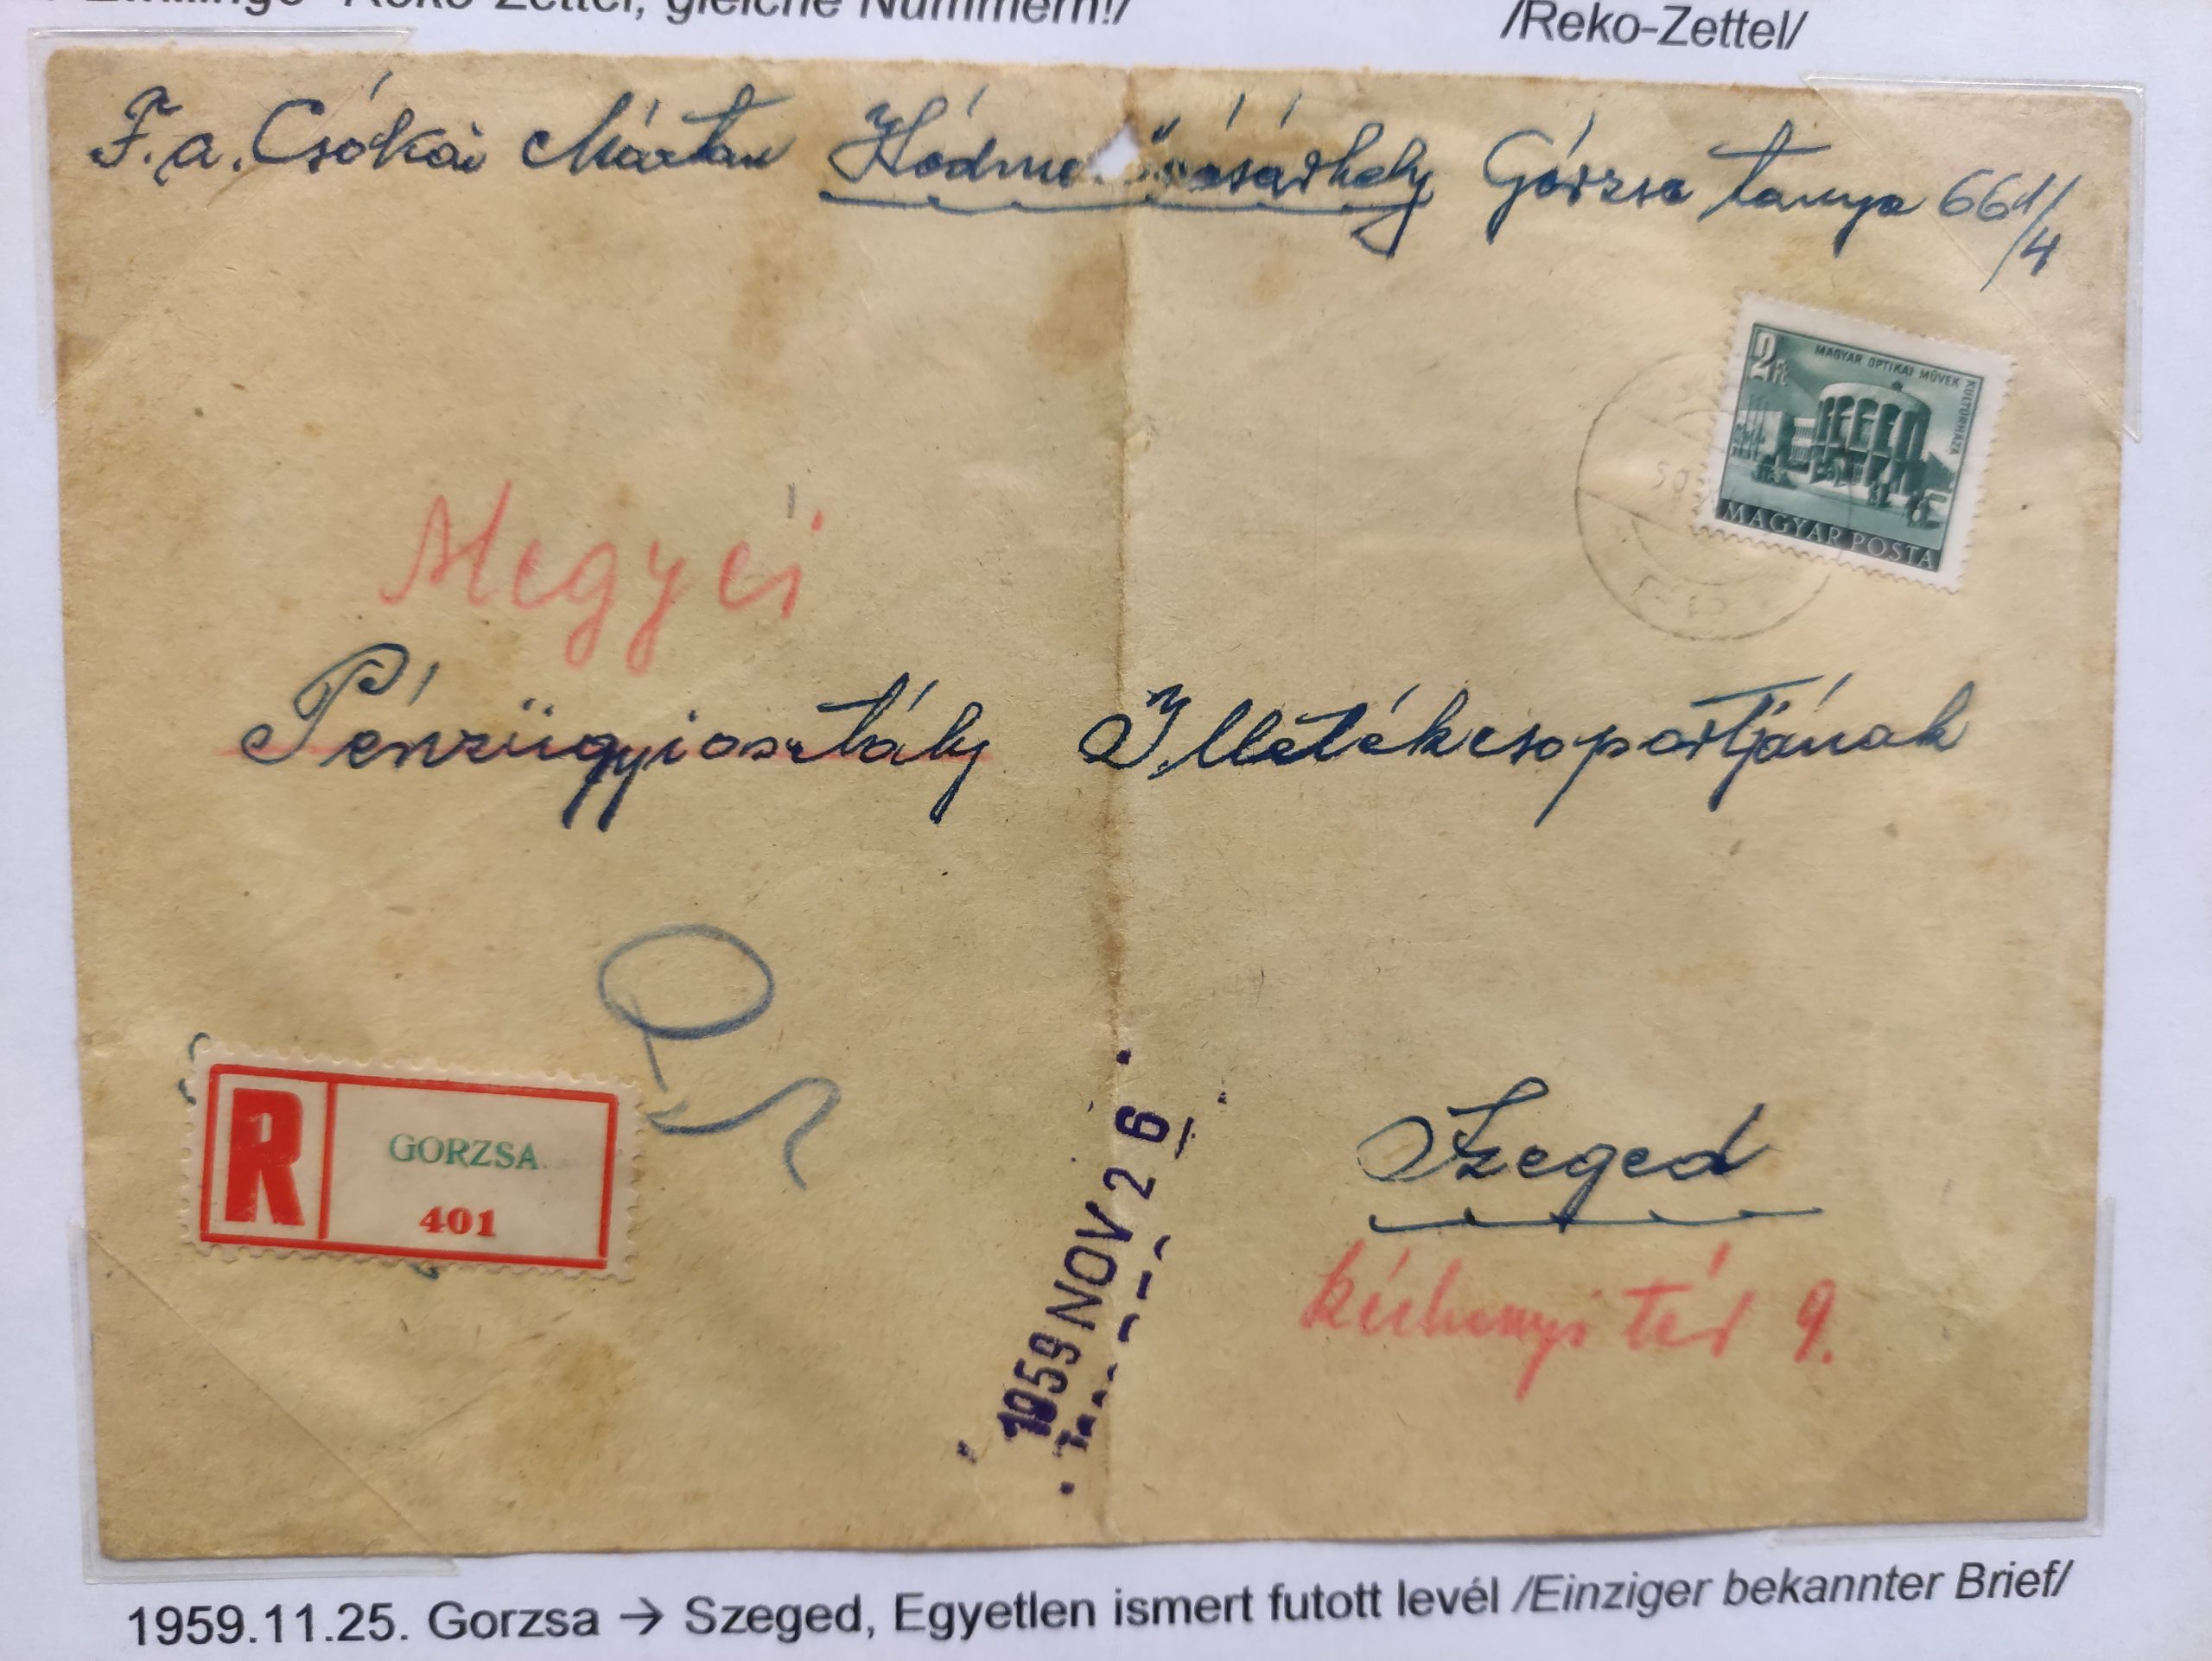 Reko-Zettel, gleiche Nummern!/
/Reko-Zettel/
F. a. Csókai Márton Hódme ővásárhely Górzsa tanya 661/4
2Ft
MAGYAR OPTIKAI MŰVEK KULTÚRHÁZA
MAGYAR POSTA
Megyei
Pénzügyiosztály Illetékcsoportjának
R
GORZSA
401
1959 NOV 26
Szeged
tér 9.
1959.11.25. Gorzsa → Szeged, Egyetlen ismert futott levél /Einziger bekannter Brief/